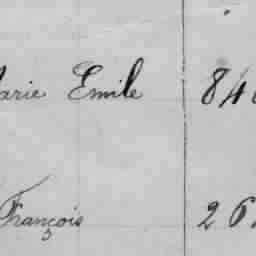 arie Emile 84
François 26